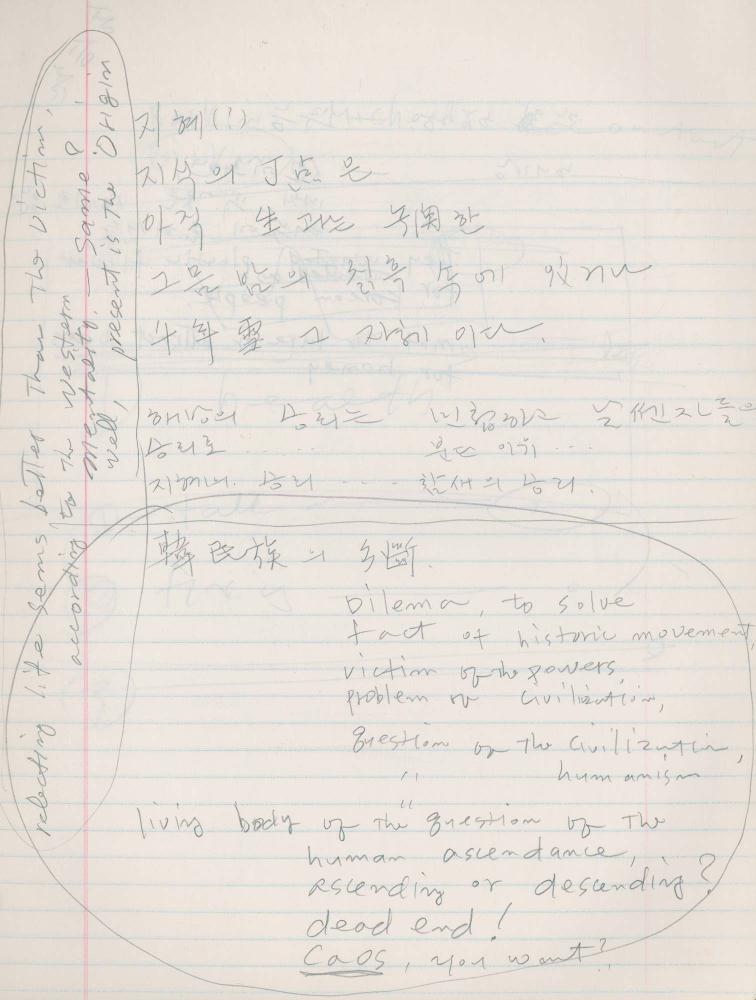 지혜(!)
지식의 頂点은
아직 生과는 무関한
그믐밤의 칡흑 속에 있거나
그 자체이다.
해방의 승리는 민첩하고 날쎈자들의
승리로 ...... 분단 이위 ...
지혜의 승리 .... 참새의 승리.
韓民族의 分斷.
Dilema, to solve
fact of historic movement,
victim of the powers,
problem of civilization,
question on the civilization,
" humanism
living body of the question of the
human ascendance,
ascending or descending?
dead end!
CaOS, you want?
rejecting life sems better than the victim,
according to the western
mentality, — Same?
well, present is the Origin